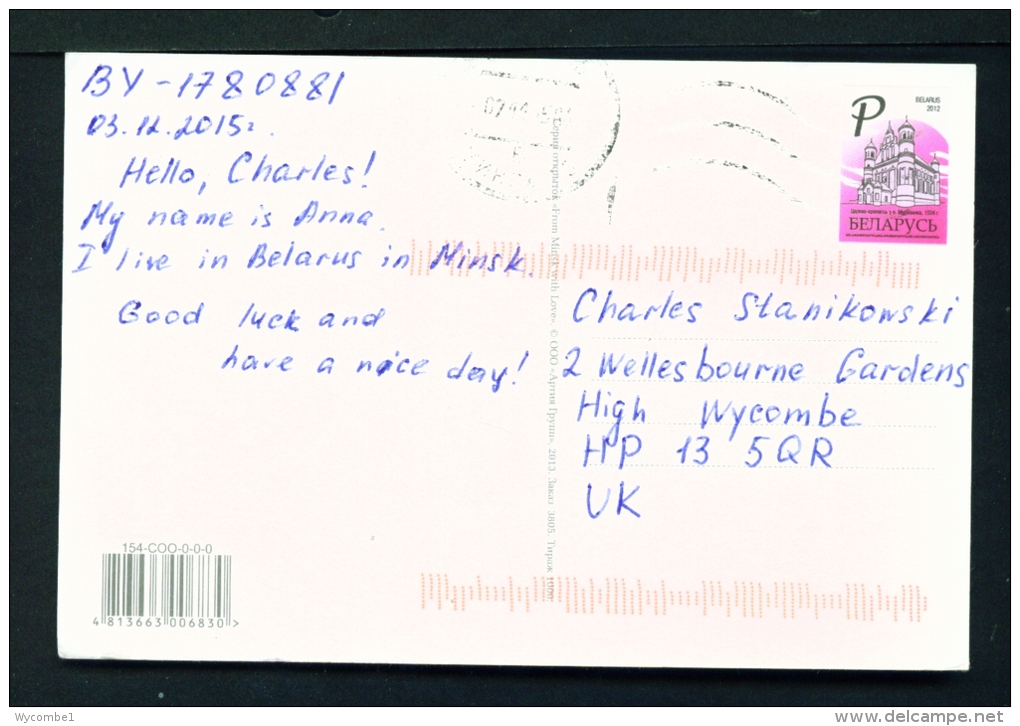 BY-1780881
03.12.2015г.
Hello, Charles!
My name is Anna.
I live in Belarus in Minsk.
Good luck and
have a nice day!
P
BELARUS
2012
БЕЛАРУСЬ
Серия открыток «From Minsk with Love». © ООО «Артия Групп», 2013. Заказ 3805. Тираж
Charles Stanikowski
2 Wellesbourne Gardens
High Wycombe
HP 13 5QR
UK
154-COO-0-0-0
4 813663 006830 >
Wycombe1
www.delcampe.net